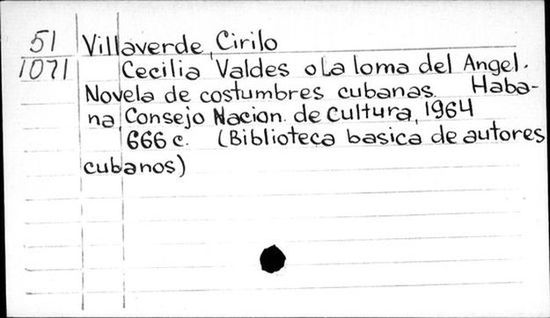 51 Villaverde, Cirilo
1071 Cecilia Valdes o La loma del Angel.
Novela de costumbres cubanas. Haba-
na, Consejo Nacion. de Cultura, 1964
666 c. (Biblioteca basica de autores
cubanos)